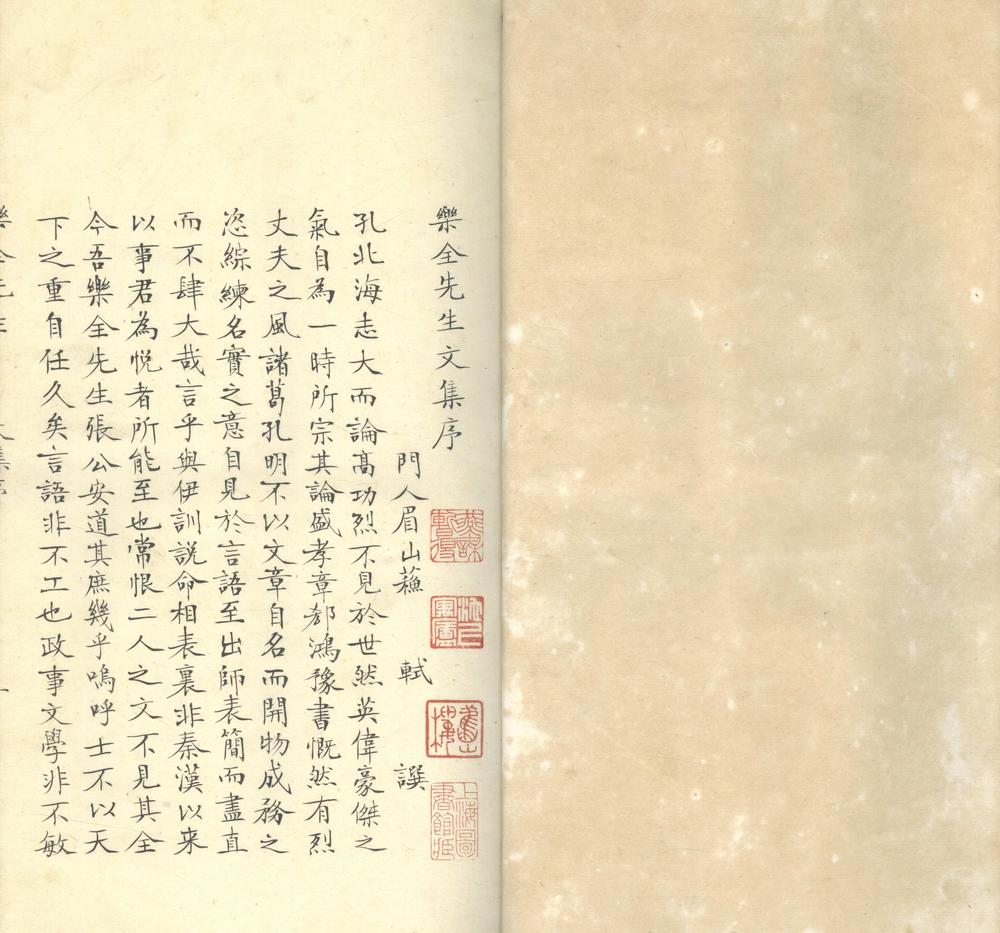 樂全先生文集序
門人眉山蘓 軾 譔
孔北海志大而論髙功烈不見於世然英偉豪傑之
氣自為一時所宗其論盛孝章郗鴻豫書慨然有烈
丈夫之風諸葛孔明不以文章自名而開物成務之
姿綜練名實之意自見於言語至出師表簡而盡直
而不肆大哉言乎與伊訓說命相表裏非秦漢以来
以事君為悅者所能至也常恨二人之文不見其全
今吾樂全先生張公安道其庶幾乎嗚呼士不以天
下之重自任久矣言語非不工也政事文學非不敏
上海圖書館臧